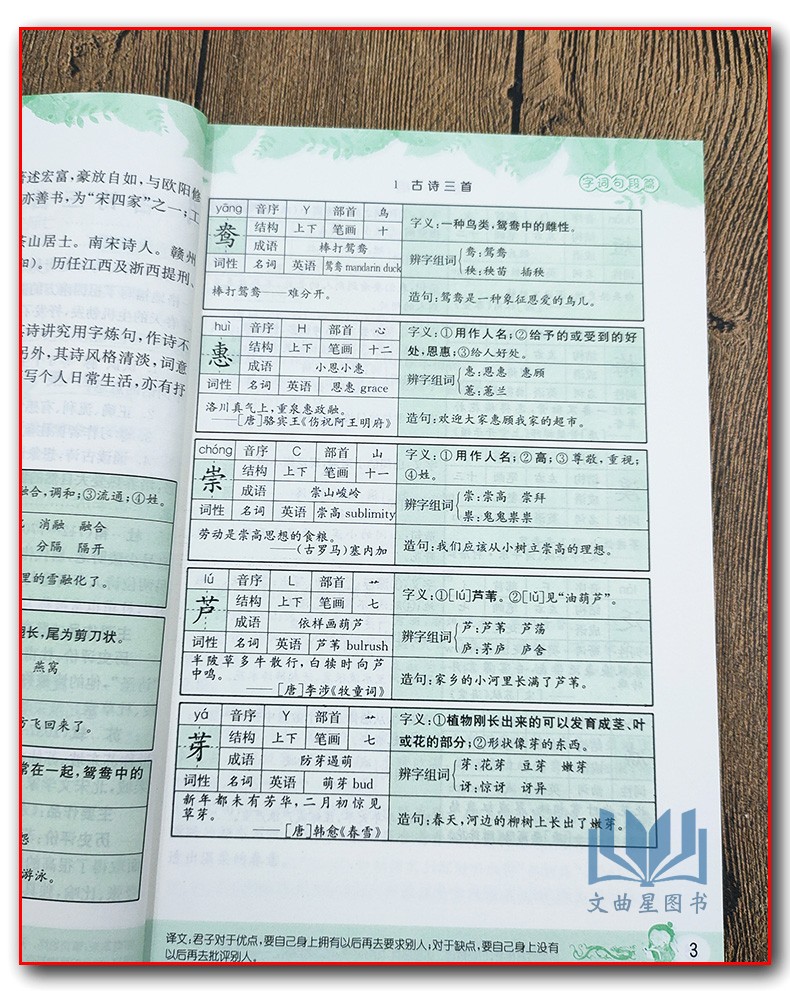 著述宏富，豪放自如，与欧阳修
亦善书，为“宋四家”之一；工
茶山居士。南宋诗人。赣州
。历任江西及浙西提刑、
其诗讲究用字炼句，作诗不
另外，其诗风格清淡，词意
写个人日常生活，亦有抒
融合，调和；③流通；④姓。
消融 融合
分隔 隔开
里的雪融化了。
长，尾为剪刀状。
燕窝
方飞回来了。
常在一起，鸳鸯中的
游泳。
1 古诗三首
字词句段篇
yāng 音序 Y 部首 鸟
鸯 结构 上下 笔画 十
成语 棒打鸳鸯
词性 名词 英语 鸳鸯 mandarin duck
棒打鸳鸯——难分开。
字义：一种鸟类，鸳鸯中的雌性。
辨字组词
鸯：鸳鸯
秧：秧苗 插秧
造句：鸳鸯是一种象征恩爱的鸟儿。
huì 音序 H 部首 心
惠 结构 上下 笔画 十二
成语 小恩小惠
词性 名词 英语 恩惠 grace
洛川真气上，重泉惠政融。
——［唐］骆宾王《伤祝阿王明府》
字义：①用作人名；②给予的或受到的好
处，恩惠；③给人好处。
辨字组词
惠：恩惠 惠顾
蕙：蕙兰
造句：欢迎大家惠顾我家的超市。
chóng 音序 C 部首 山
崇 结构 上下 笔画 十一
成语 崇山峻岭
词性 名词 英语 崇高 sublimity
劳动是崇高思想的食粮。
——（古罗马）塞内加
字义：①用作人名；②高；③尊敬，重视；
④姓。
辨字组词
崇：崇高 崇拜
祟：鬼鬼祟祟
造句：我们应该从小树立崇高的理想。
lú 音序 L 部首 艹
芦 结构 上下 笔画 七
成语 依样画葫芦
词性 名词 英语 芦苇 bulrush
半陂草多牛散行，白犊时向芦
中鸣。
——［唐］李涉《牧童词》
字义：①［lú］芦苇。②［lǔ］见“油葫芦”。
辨字组词
芦：芦苇 芦荡
庐：茅庐 庐舍
造句：家乡的小河里长满了芦苇。
yá 音序 Y 部首 艹
芽 结构 上下 笔画 七
成语 防芽遏萌
词性 名词 英语 萌芽 bud
新年都未有芳华，二月初惊见
草芽。
——［唐］韩愈《春雪》
字义：①植物刚长出来的可以发育成茎、叶
或花的部分；②形状像芽的东西。
辨字组词
芽：花芽 豆芽 嫩芽
讶：惊讶 讶异
造句：春天，河边的柳树上长出了嫩芽。
文曲星图书
译文：君子对于优点，要自己身上拥有以后再去要求别人；对于缺点，要自己身上没有
以后再去批评别人。
3